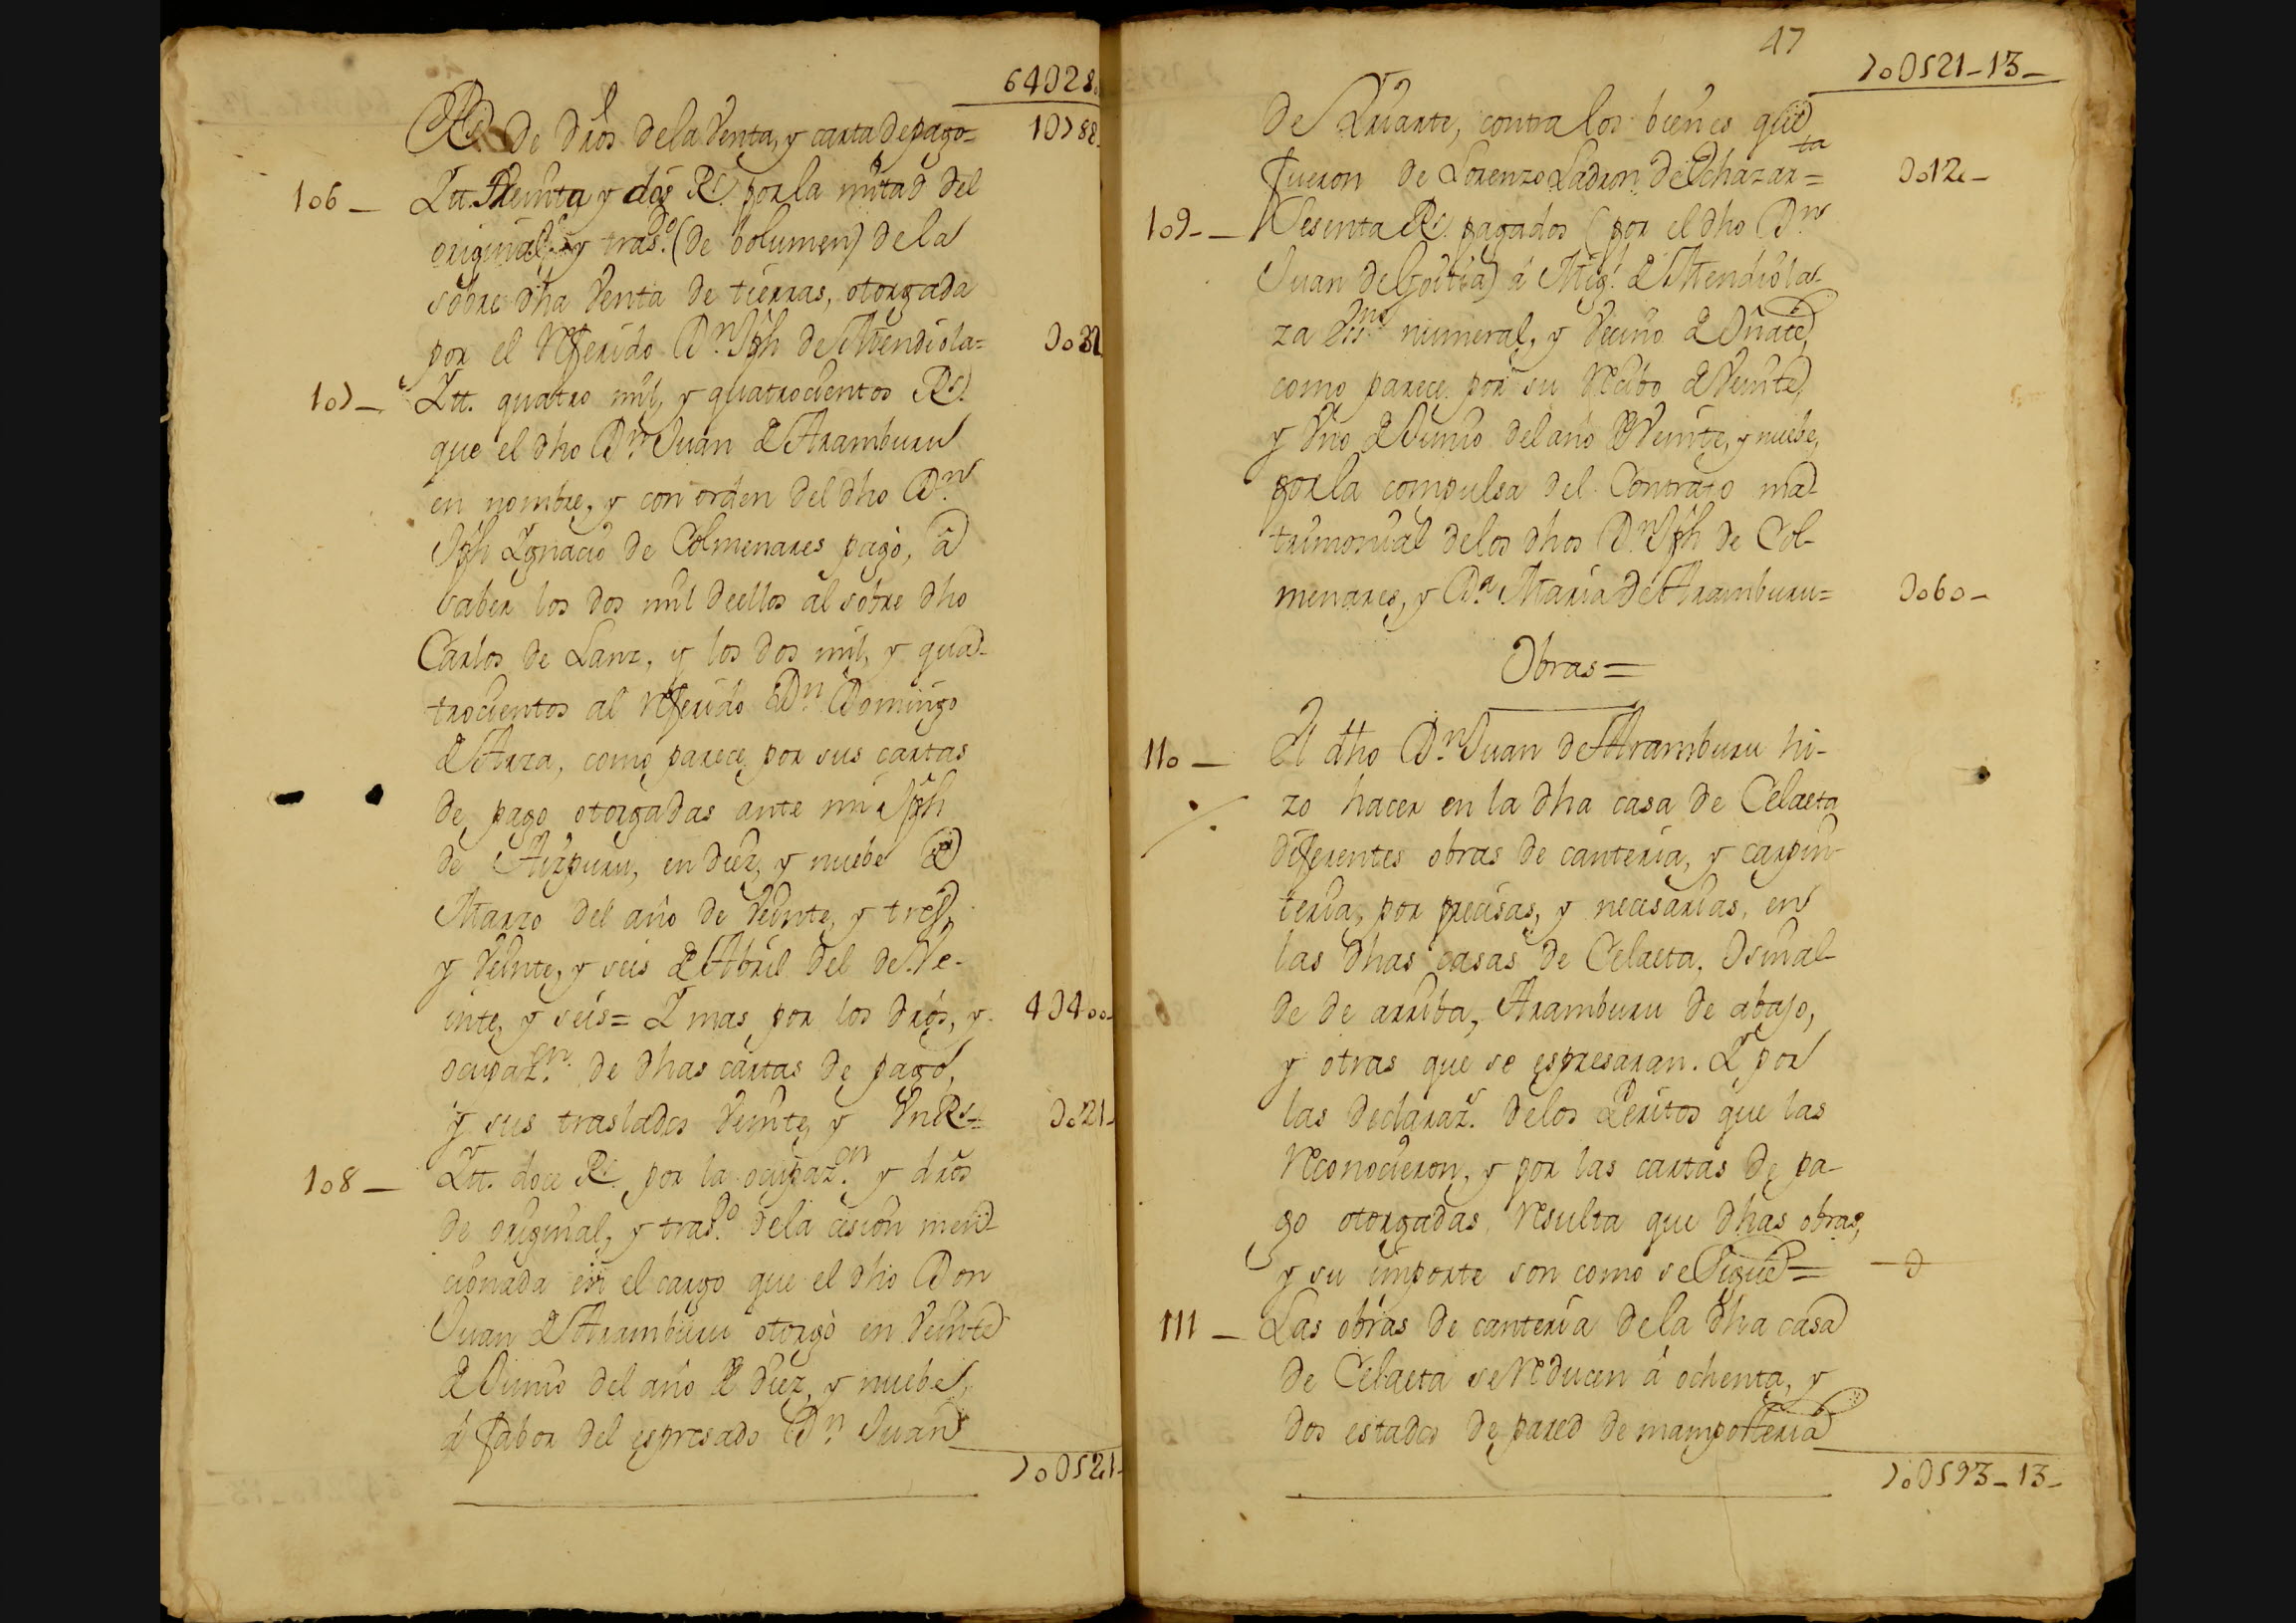 64 028
Rs. de dros dela Venta, y carta de pago= 10788
106 — Itt. treinta y dos Rs. por la mitad del
original, y tras.do (de bolumen) de la
sobre dha Venta de tierras, otorgada
por el referido Dn. Jph de Mendiola= 0032
107 — Itt. quatro mil, y quatrocientos Rs.
que el dho Dn. Juan de Aramburu
en nombre, y con orden del dho Dn.
Jph Ignacio de Colmenares pagò, à
saber los dos mil deellos al sobre dho
Carlos de Lanz, y los dos mil, y qua-
trocientos al referido Dn. Domingo
de Arza, como parece por sus cartas
de pago otorgadas ante mi Jph
de Aizpuru, en diez, y nuebe de
Marzo del año de Veinte, y tres,
y Veinte, y seis de Abril del de Ve-
inte, y seis= I mas por los dros, y 40400-
ocupaz.on de dhas cartas de pago,
y sus traslados Veinte, y Un Rs.= 0021-
108 — Itt. doce Rs. por la ocupaz.on y dros
de original, y tras.do dela cesion men-
cionada en el cargo que el dho Don
Juan de Aramburu otorgò en Veinte
de Junio del año de diez, y nuebe,
à fabor del espresado Dn. Juan
700521-
47
700521-13-
de Uriarte, contra los bienes que
fueron de Lorenzo Ladron de Echazar=ta 0012-
109 — Sesenta Rs. pagados (por el dho Dn.
Juan de Goitia) à Mig.l de Mendiola-
za Ess.no numeral, y Vecino de Oñate,
como parece por su recibo de Veinte,
y Uno de Junio del año de Veinte, y nuebe,
por la compulsa del Contrato ma-
trimonial delos dhos Dn. Jph de Col-
menares, y Da. Maria de Aramburu= 0060-
Obras=
110 — El dho Dn. Juan de Aramburu hi-
zo hacer en la dha casa de Celaeta
diferentes obras de canteria, y carpin-
teria, por precisas, y necesarias, en
las dhas casas de Celaeta, Osinal-
de de arriba, Aramburu de abajo,
y otras que se espresaran. I por
las declaraz.s delos Peritos que las
reconocieron, y por las cartas de pa-
go otorgadas resulta que dhas obras,
y su importe son como se Sigue= —0
111 — Las obras de canteria dela dha casa
de Celaeta se reducen à ochenta, y
dos estados de pared de mamposteria
700593-13-